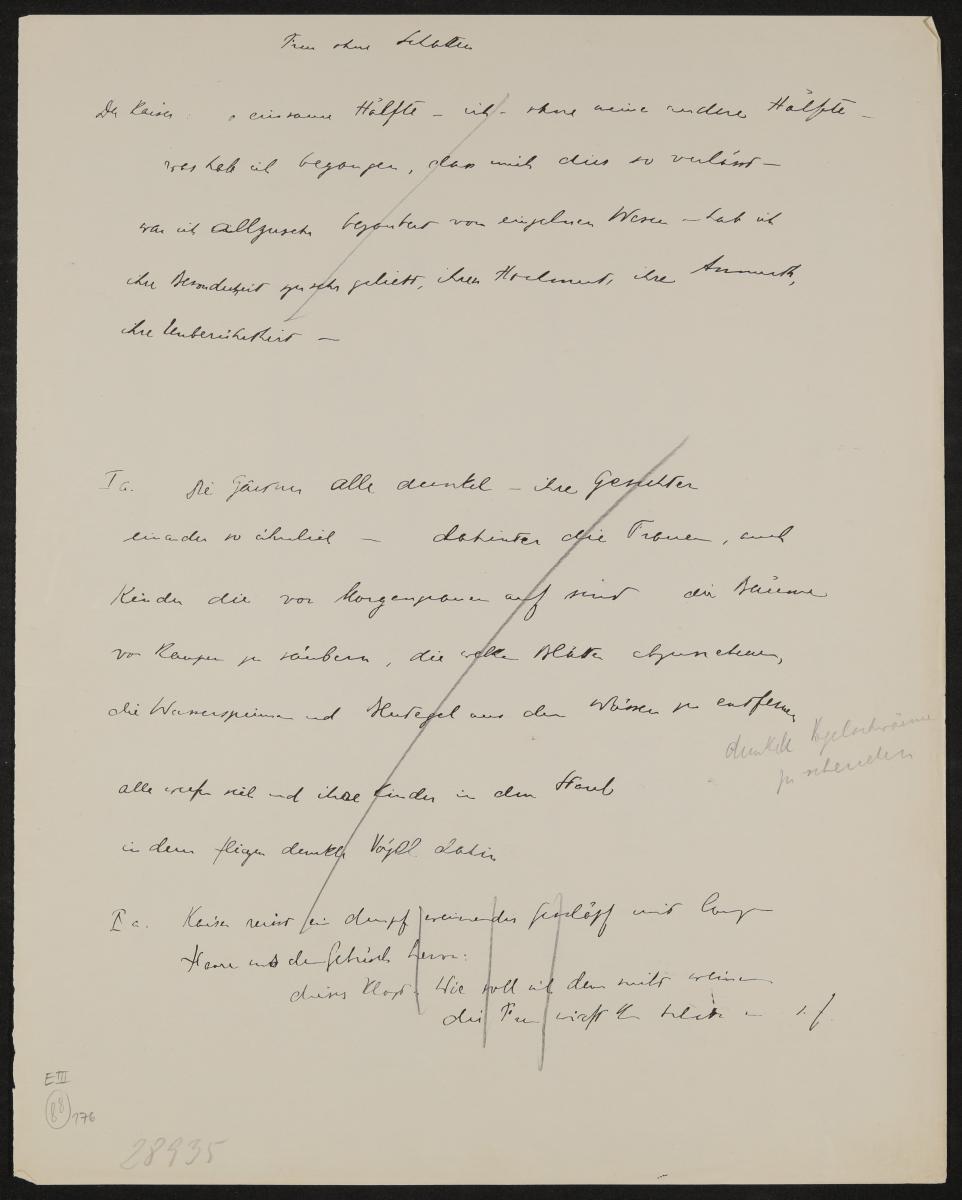 Frau ohne Schatten
Der Kaiser: o einsame Hälfte – ich – ohne meine andere Hälfte –
was hab ich begangen, dass mich dies so verlässt –
war ich allzusehr bezaubert von einzelnen Wesen – hab ich
ihre Besonderheit zu sehr geliebt, ihren Hochmut, ihre Anmuth,
ihre Unberührtheit –
I a. die Gärtner alle dunkel – ihre Gesichter
einander so ähnlich – dahinter die Frauen, auch
Kinder die vor Morgengrauen auf sind die Bäume
von Raupen zu säubern, die welken Blätter abzunehmen,
die Wasserspinnen und Blutegel aus den Wässern zu entfernen
dunkle Vogelschwärme
zu scheuchen
alle werfen sich und ihre Kinder in den Staub
in dem fliegen dunkle Vögel dahin
II a. Kaiser reisst ein dumpf weinendes Geschöpf mit langen
Haaren aus dem Gebüsch hervor:
dieses klagt: Wie soll ich denn nicht weinen
die Frau wirft
E III
88
176
28935